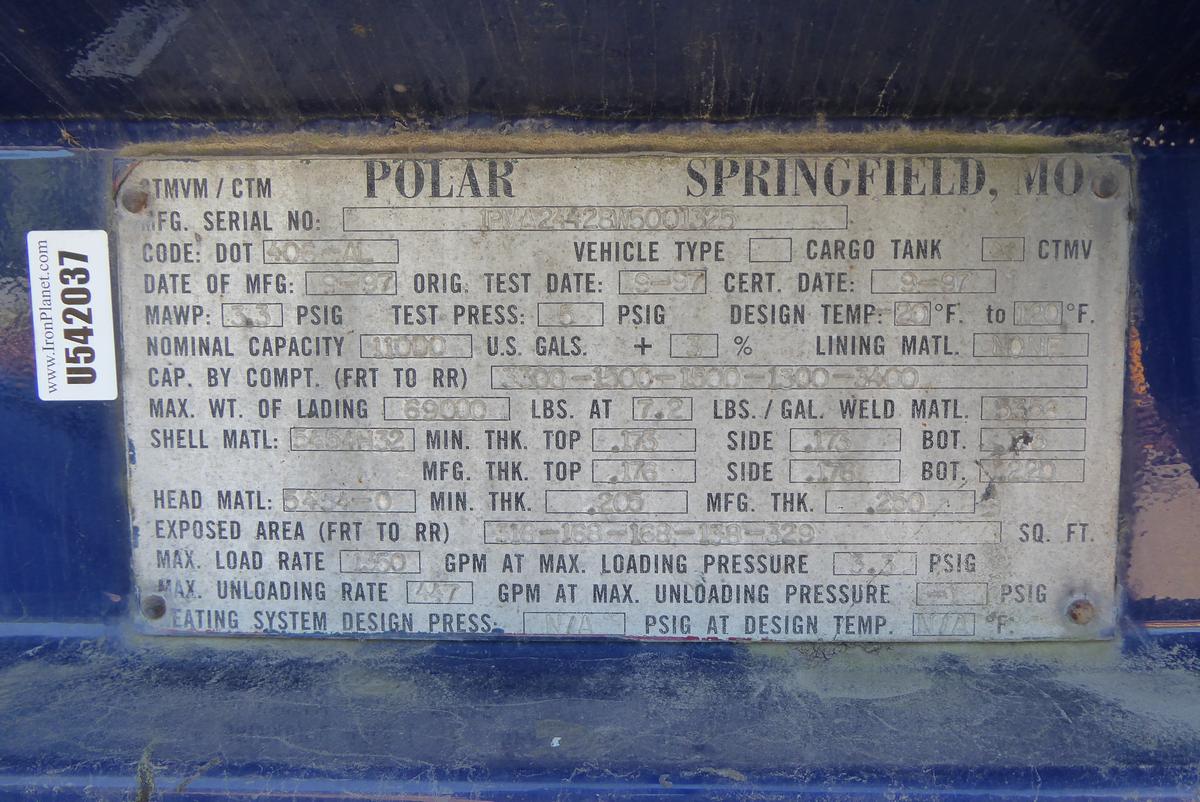 CTMVM / CTM POLAR SPRINGFIELD, MO
MFG. SERIAL NO:
CODE: DOT 406-AL VEHICLE TYPE CARGO TANK CTMV
DATE OF MFG: 9-97 ORIG. TEST DATE: 9-97 CERT. DATE: 9-97
MAWP: 3.3 PSIG TEST PRESS: 5 PSIG DESIGN TEMP: 20 °F. to 120 °F.
NOMINAL CAPACITY 11000 U.S. GALS. + 3 % LINING MATL. NONE
CAP. BY COMPT. (FRT TO RR)
MAX. WT. OF LADING 69000 LBS. AT 7.2 LBS./GAL. WELD MATL.
SHELL MATL: 5454H32 MIN. THK. TOP .173 SIDE .173 BOT.
MFG. THK. TOP .176 SIDE .176 BOT. .220
HEAD MATL: 5454-0 MIN. THK. .205 MFG. THK. .250
EXPOSED AREA (FRT TO RR) SQ. FT.
MAX. LOAD RATE GPM AT MAX. LOADING PRESSURE 3.3 PSIG
MAX. UNLOADING RATE GPM AT MAX. UNLOADING PRESSURE PSIG
HEATING SYSTEM DESIGN PRESS: N/A PSIG AT DESIGN TEMP. N/A °F.
www.IronPlanet.com
U542037